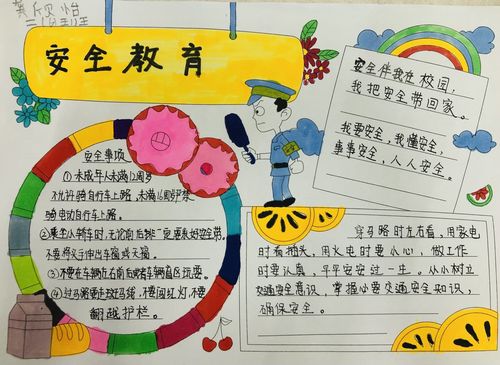 怡
安全教育
安全事项
①未成年人未满12周岁
不允许骑自行车上路,未满16周岁禁
骑电动自行车上路。
②乘坐小轿车时,无论前后排一定要系好安全带,
不要将头手伸出车窗或天窗。
③不要在车辆左右前后或者车辆盲区玩耍。
④过马路要走斑马线,不要闯红灯,不要
翻越护栏。
安全伴我在校园,
我把安全带回家。
我要安全,我懂安全,
事事安全,人人安全。
穿马路时左右看,用家电
时看插头,用火电时要小心,做工作
时要认真,平平安安过一生。从小树立
交通安全意识,掌握必要交通安全知识,
确保安全。